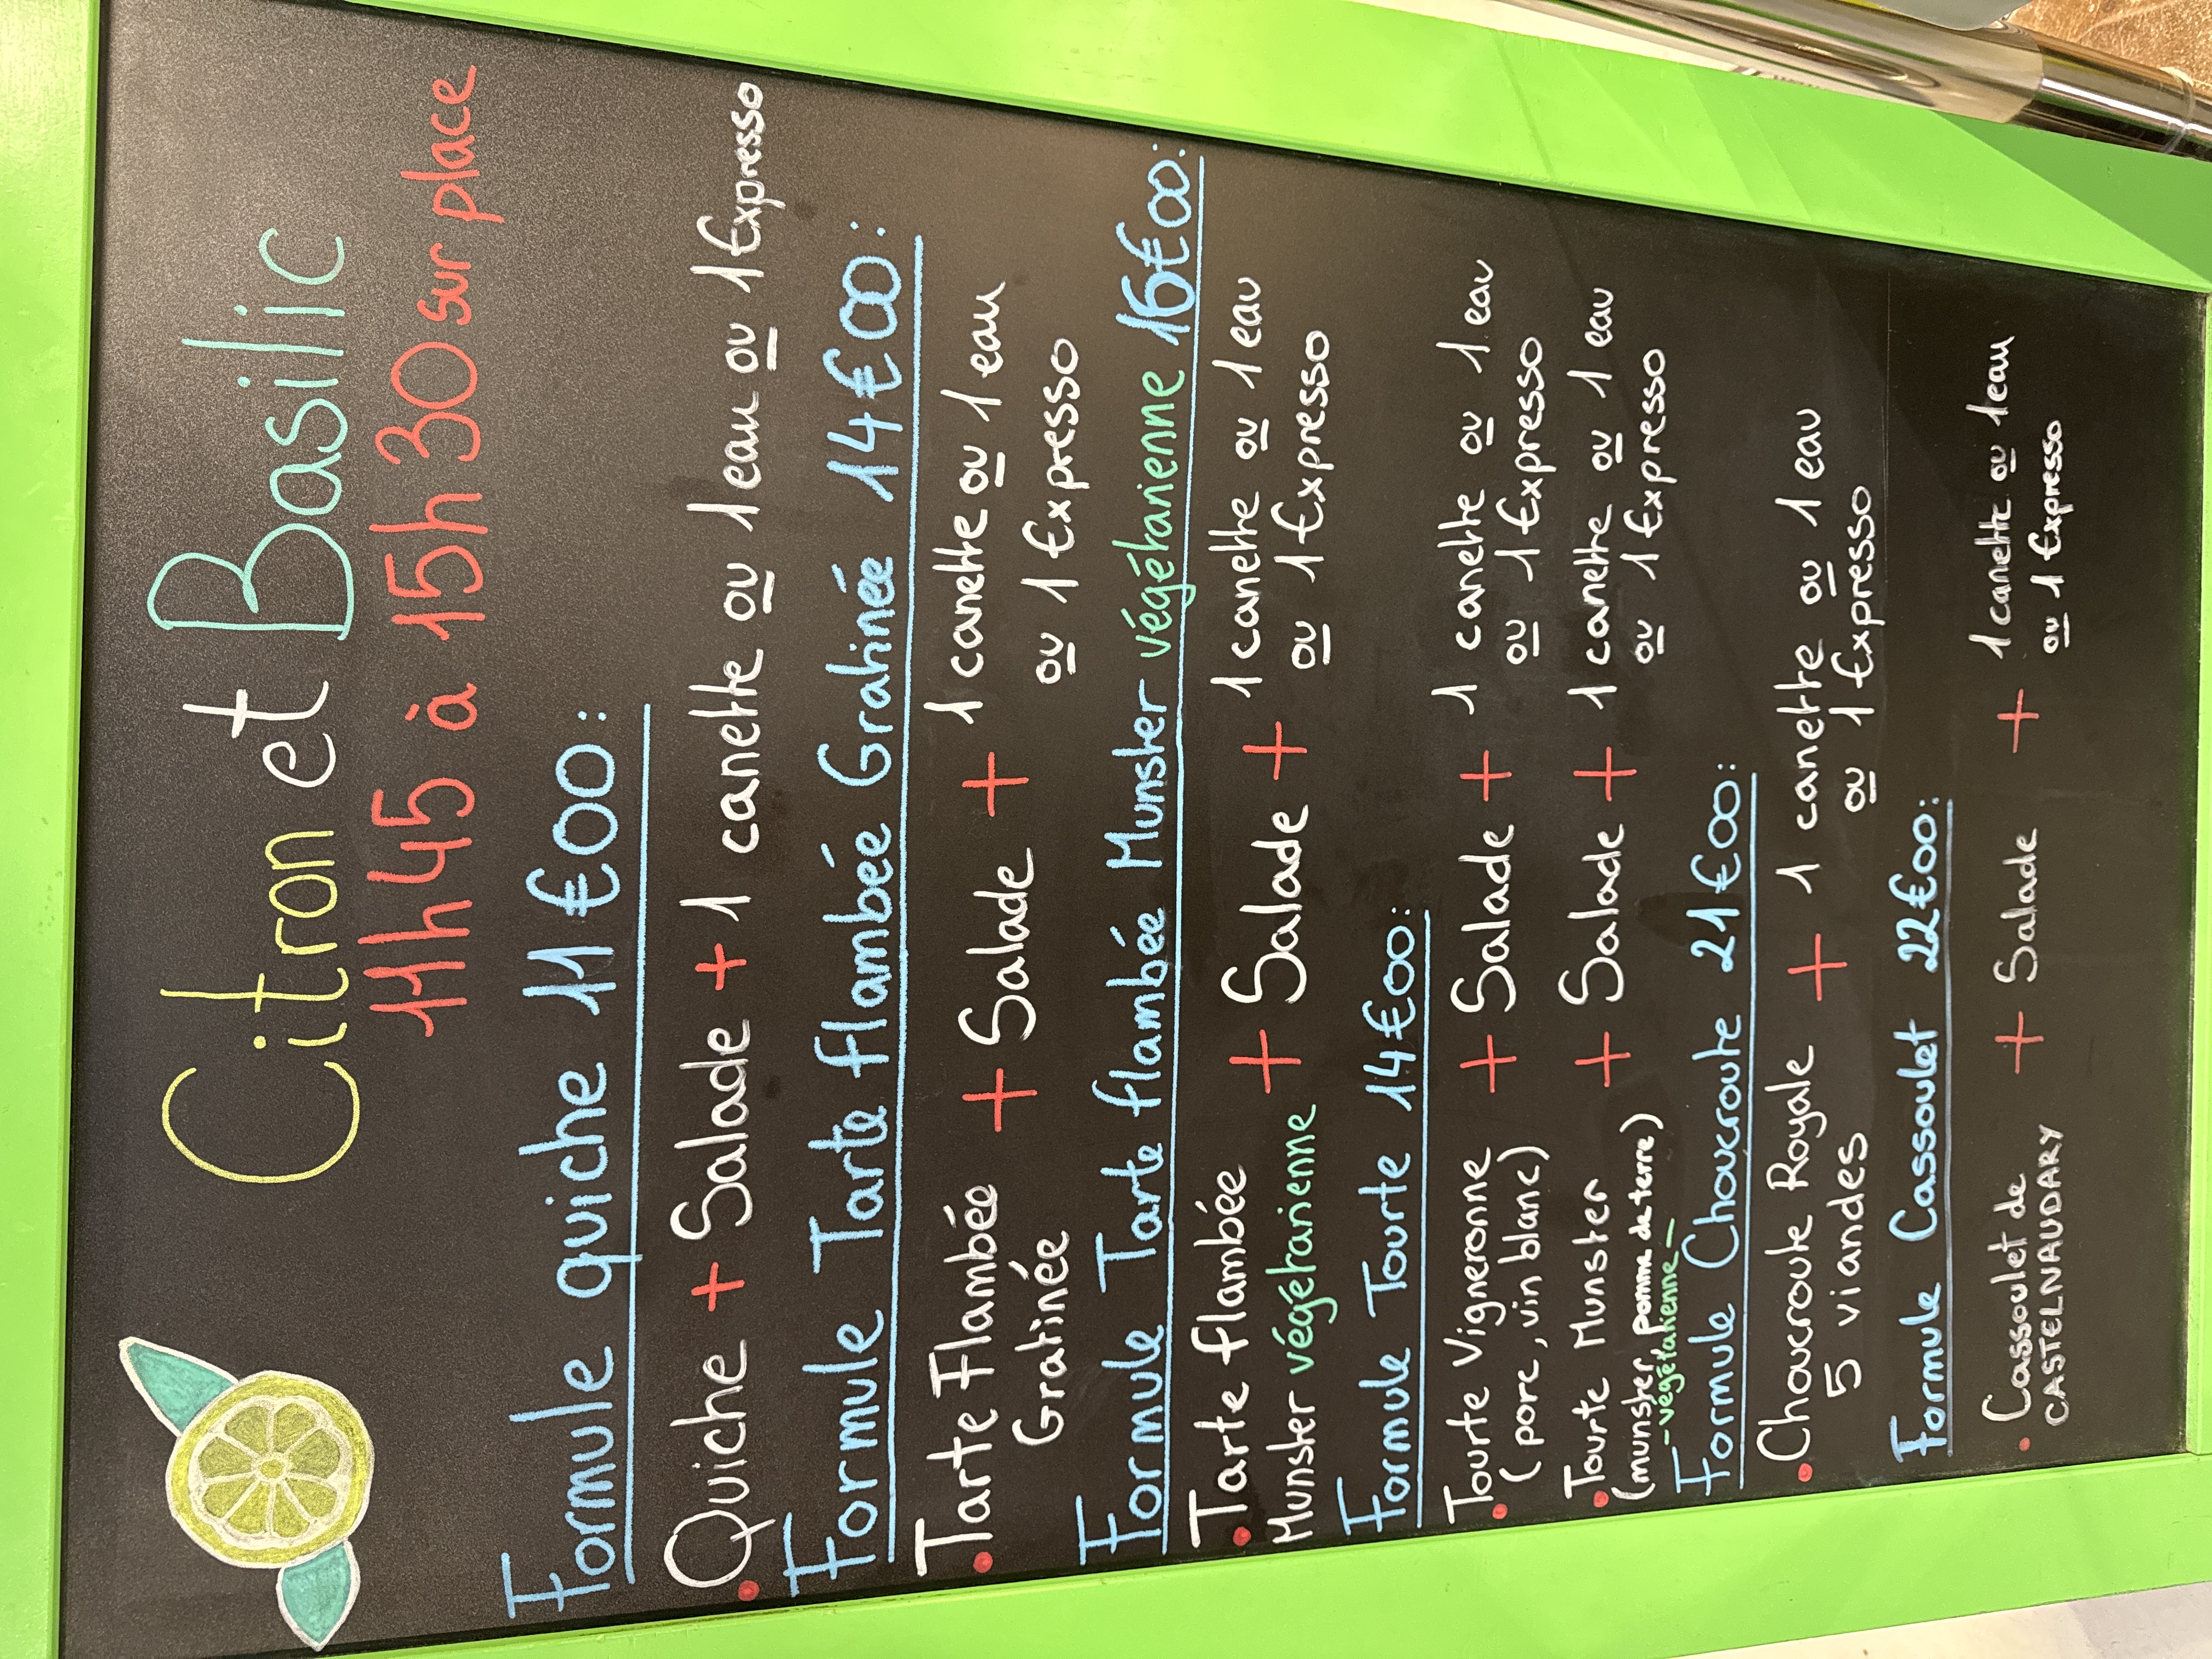 Citron et Basilic
11h45 à 15h30 sur place
Formule quiche 11€00:
Quiche + Salade + 1 canette ou 1 eau ou 1 Expresso
Formule Tarte flambée Gratinée 14€00:
Tarte Flambée + Salade + 1 canette ou 1 eau
Gratinée ou 1 Expresso
Formule Tarte flambée Munster végétarienne 16€00:
Tarte flambée + Salade + 1 canette ou 1 eau
Munster végétarienne ou 1 Expresso
Formule Tourte 14€00:
Tourte Vigneronne + Salade + 1 canette ou 1 eau
(porc, vin blanc) ou 1 Expresso
Tourte Munster + Salade + 1 canette ou 1 eau
(munster, pomme de terre) ou 1 Expresso
- végétarienne -
Formule Choucroute 21€00:
Choucroute Royale + 1 canette ou 1 eau
5 viandes ou 1 Expresso
Formule Cassoulet 22€00:
Cassoulet de + Salade + 1 canette ou 1 eau
CASTELNAUDARY ou 1 Expresso